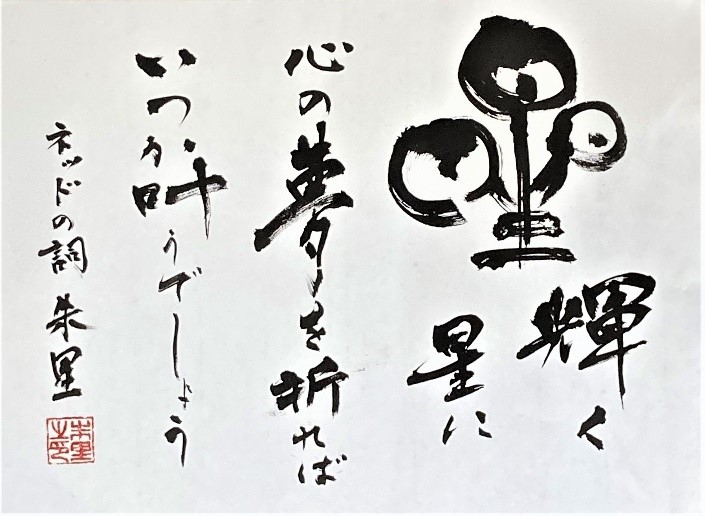 星
輝く
星に
心の夢を祈れば
いつか叶うでしょう
ネッドの詞 朱里
朱里之印